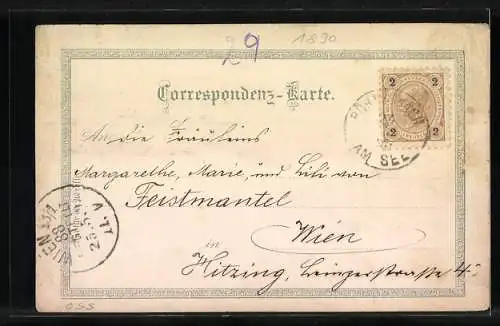 29
1890
Correspondenz-Karte.
2 2
2 2
AM SEE
An die Fräuleins
Margarethe, Marie, und Lili von
Feistmantel
Wien
in
Hitzing, Lainzerstrasse 4.
WIEN
25.5.
98